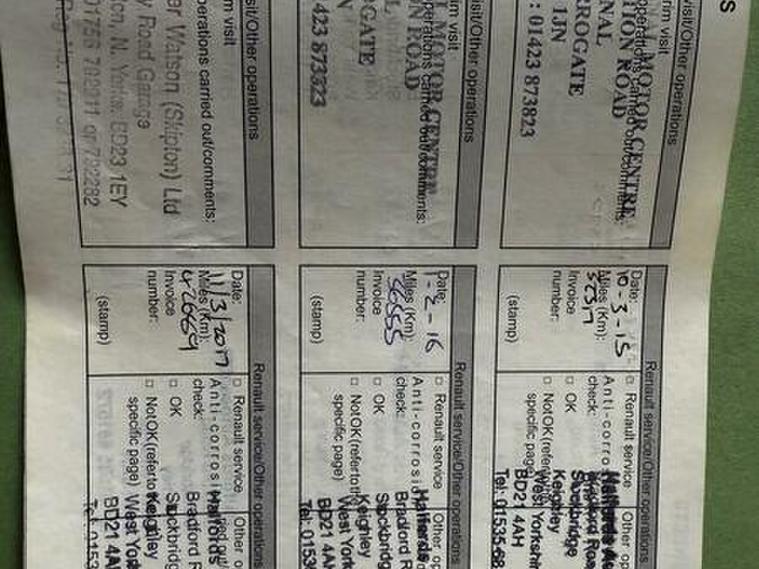 S
visit/Other operations
rim visit
operations carried out/comments:
MOTOR CENTRE
TION ROAD
NAL
RROGATE
1JN
: 01423 873823
Date:
10-3-15
Miles (Km):
Invoice
number:
(stamp)
Renault service/Other operations
□ Renault service □ Other o
Anti-corrosi
check:
□ OK
□ Not OK (refer
specific page)
Halfords A
Bradford Roa
Stockbridge
Keighley
West Yorkshir
BD21 4AH
Tel: 01535 68
visit/Other operations
rim visit
operations carried out/comments:
MOTOR CENTRE
ON ROAD
L
OGATE
N
423 873823
Date:
1-2-16
Miles (Km):
Invoice
number:
(stamp)
Renault service/Other operations
□ Renault service □ Other o
Anti-corrosi
check:
□ OK
□ Not OK (refer to th
specific page)
Halfords
Bradford R
Stockbridge
Keighley
West York
BD21 4AH
Tel: 0153
isit/Other operations
im visit
perations carried out/comments:
er Watson (Skipton) Ltd
y Road Garage
ton, N. Yorks. BD23 1EY
01756 792911 or 792282
Date:
11/3/2017
Miles (Km):
42664
Invoice
number:
(stamp)
Renault service/Other operations
□ Renault service □ Other o
Anti-corrosi
check:
□ OK
□ Not OK (refer to the
specific page)
Halfords
Bradford R
Stockbridg
Keighley
West York
BD21 4A
Tel: 0153